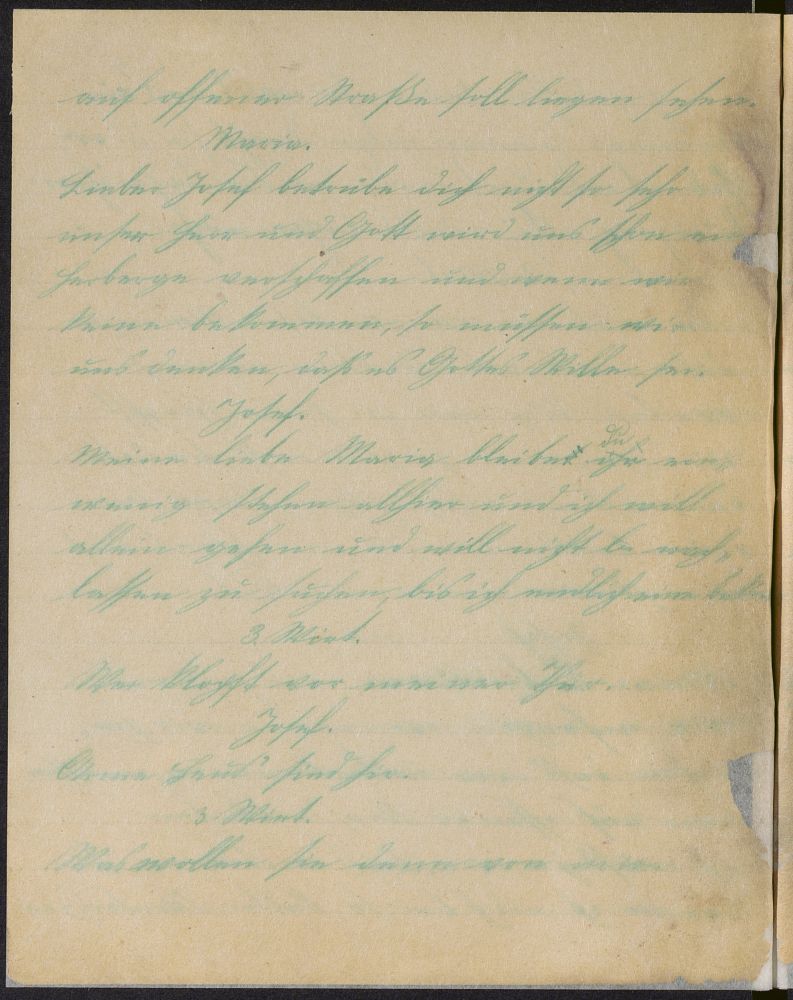 auf offener Straße soll liegen sehen.
Maria.
Lieber Josef betrübe dich nicht so sehr
unser Herr und Gott wird uns schon
Herberge verschaffen und wenn wir
keine bekommen, so müssen wir
uns denken, daß es Gottes Wille sei.
Josef.
Meine liebe Maria bleibe du ein
wenig stehen allhier und ich will
allein gehen und will nicht
lassen zu suchen, bis ich endlich eine
3. Wirt.
Wer klopft vor meiner Thür.
Josef.
Arme Leut sind hir.
3. Wirt.
Was wollen sie denn von mir.